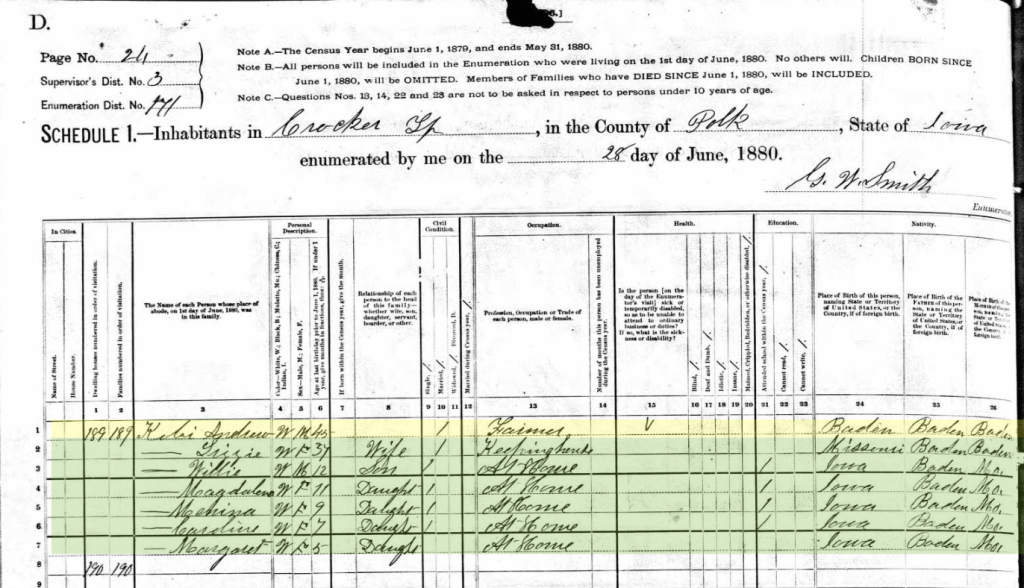 D.
Page No. 24
Supervisor's Dist. No. 3
Enumeration Dist. No. 171
Note A.—The Census Year begins June 1, 1879, and ends May 31, 1880.
Note B.—All persons will be included in the Enumeration who were living on the 1st day of June, 1880. No others will. Children BORN SINCE
June 1, 1880, will be OMITTED. Members of Families who have DIED SINCE June 1, 1880, will be INCLUDED.
Note C.—Questions Nos. 13, 14, 22 and 23 are not to be asked in respect to persons under 10 years of age.
SCHEDULE 1.—Inhabitants in Crocker Tp, in the County of Polk, State of Iowa
enumerated by me on the 28 day of June, 1880.
G. W. Smith
Enumerator
In Cities. Personal Description. Civil Condition. Occupation. Health. Education. Nativity.
Name of Street.
House Number.
Dwelling houses numbered in order of visitation.
Families numbered in order of visitation.
The Name of each Person whose place of abode, on 1st day of June, 1880, was in this family.
Color—White, W; Black, B; Mulatto, Mu; Chinese, C; Indian, I.
Sex—Male, M; Female, F.
Age at last birthday prior to June 1, 1880. If under 1 year, give months in fractions, thus:
If born within the Census year, give the month.
Relationship of each person to the head of this family—whether wife, son, daughter, servant, boarder, or other.
Single, /
Married, /
Widowed, / Divorced, D.
Married during Census year, /
Profession, Occupation or Trade of each person, male or female.
Number of months this person has been unemployed during the Census year.
Is the person [on the day of the Enumerator's visit] sick or temporarily disabled, so as to be unable to attend to ordinary business or duties? If so, what is the sickness or disability?
Blind, /
Deaf and Dumb, /
Idiotic, /
Insane, /
Maimed, Crippled, Bedridden, or otherwise disabled, /
Attended school within the Census year, /
Cannot read, /
Cannot write, /
Place of Birth of this person, naming State or Territory of United States, or the Country, if of foreign birth.
Place of Birth of the FATHER of this person, naming the State or Territory of United States, or the Country, if of foreign birth.
Place of Birth of the
1 2 3 4 5 6 7 8 9 10 11 12 13 14 15 16 17 18 19 20 21 22 23 24 25 26
1 189 189 Andrew W M 45 / Farmer Baden Baden Baden
2 — Lizzie W F 37 Wife / Keeping house Missouri Baden Baden
3 — Willie W M 12 Son / At Home / Iowa Baden Mo.
4 — Magdalena W F 11 Daught / At Home / Iowa Baden Mo.
5 — W F 9 Daught / At Home / Iowa Baden Mo.
6 — Caroline W F 7 Daught / At Home / Iowa Baden Mo.
7 — Margaret W F 5 Daught At Home Iowa Baden Mo.
8 190 190